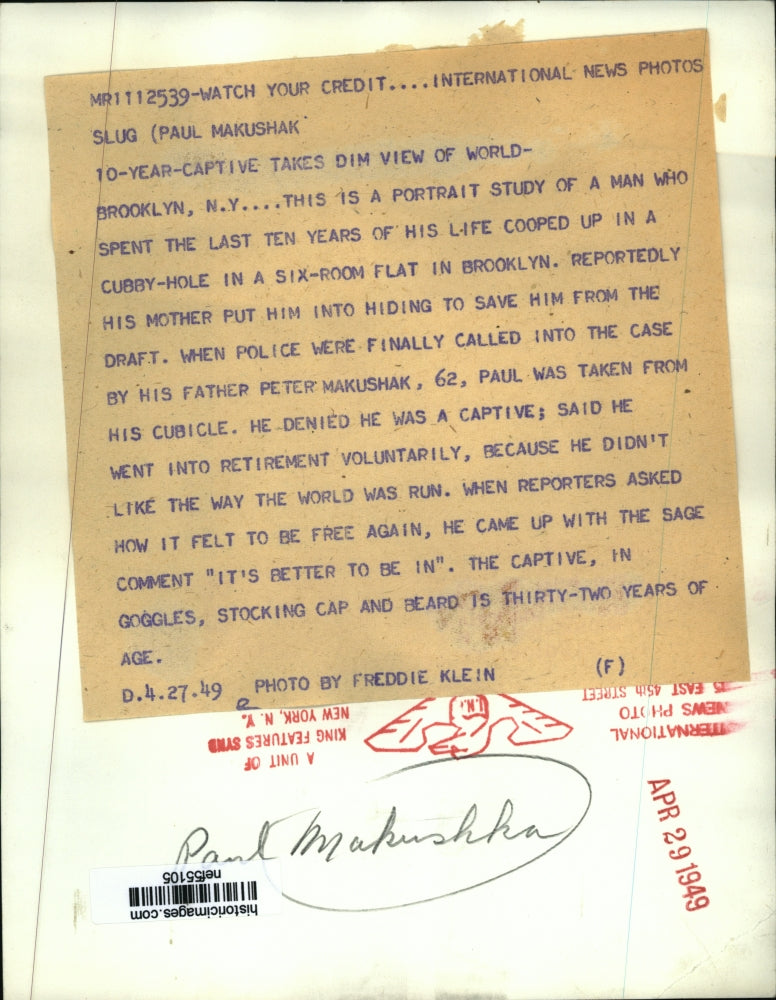 MR1112539-WATCH YOUR CREDIT....INTERNATIONAL NEWS PHOTOS
SLUG (PAUL MAKUSHAK
10-YEAR-CAPTIVE TAKES DIM VIEW OF WORLD-
BROOKLYN, N.Y....THIS IS A PORTRAIT STUDY OF A MAN WHO
SPENT THE LAST TEN YEARS OF HIS LIFE COOPED UP IN A
CUBBY-HOLE IN A SIX-ROOM FLAT IN BROOKLYN. REPORTEDLY
HIS MOTHER PUT HIM INTO HIDING TO SAVE HIM FROM THE
DRAFT. WHEN POLICE WERE FINALLY CALLED INTO THE CASE
BY HIS FATHER PETER MAKUSHAK, 62, PAUL WAS TAKEN FROM
HIS CUBICLE. HE DENIED HE WAS A CAPTIVE; SAID HE
WENT INTO RETIREMENT VOLUNTARILY, BECAUSE HE DIDN'T
LIKE THE WAY THE WORLD WAS RUN. WHEN REPORTERS ASKED
HOW IT FELT TO BE FREE AGAIN, HE CAME UP WITH THE SAGE
COMMENT "IT'S BETTER TO BE IN". THE CAPTIVE, IN
GOGGLES, STOCKING CAP AND BEARD IS THIRTY-TWO YEARS OF
AGE.
D.4.27.49 PHOTO BY FREDDIE KLEIN (F)
INTERNATIONAL
NEWS PHOTO
EAST 45th STREET
I.N.
A UNIT OF
KING FEATURES SYND
NEW YORK, N. Y.
APR 29 1949
Paul Makushka
historicimages.com
nef55105